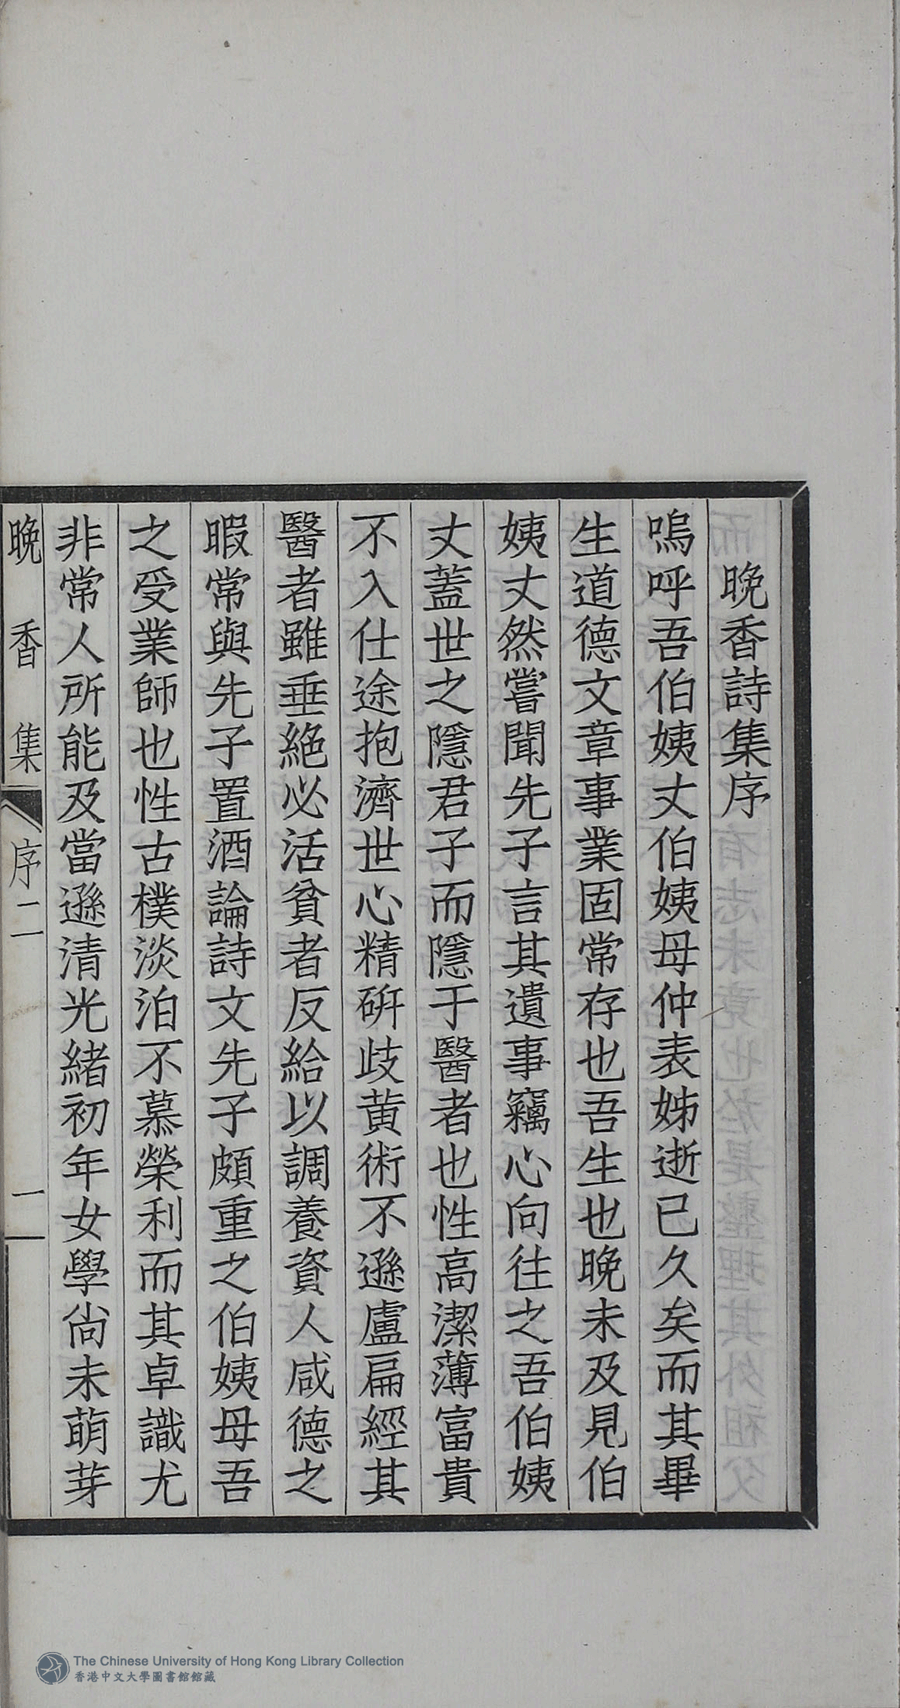 晚香詩集序
嗚呼吾伯姨丈伯姨母仲表姊逝已久矣而其畢
生道德文章事業固常存也吾生也晚未及見伯
姨丈然嘗聞先子言其遺事竊心向往之吾伯姨
丈蓋世之隱君子而隱于醫者也性高潔薄富貴
不入仕途抱濟世心精硏歧黃術不遜盧扁經其
醫者雖垂絕必活貧者反給以調養資人咸德之
暇常與先子置酒論詩文先子頗重之伯姨母吾
之受業師也性古樸淡泊不慕榮利而其卓識尤
非常人所能及當遜清光緒初年女學尚未萌芽
晚香集 序二 一
The Chinese University of Hong Kong Library Collection
香港中文大學圖書館館藏